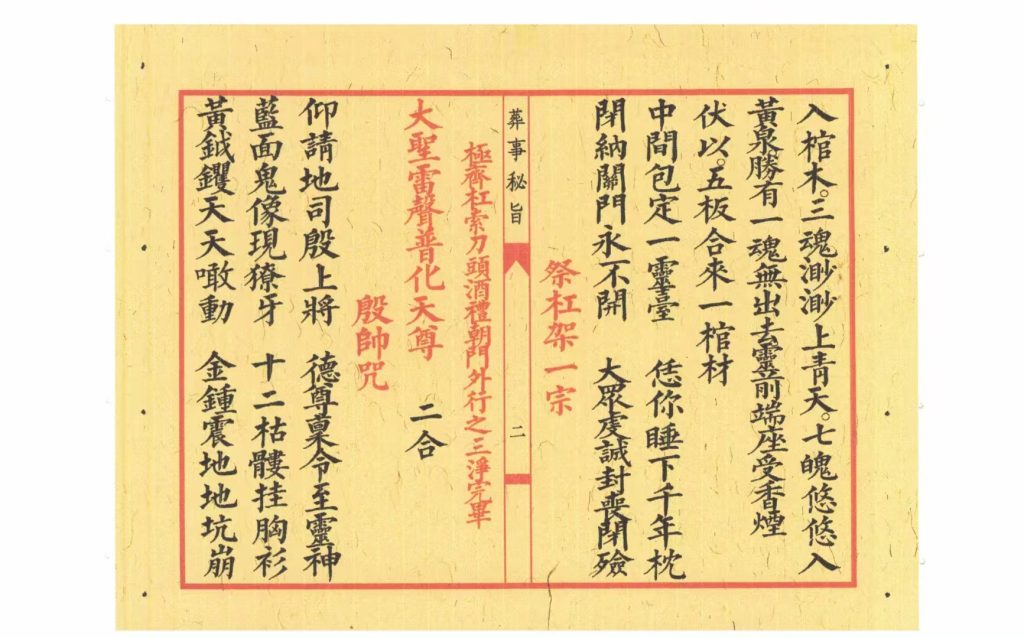 入棺木。三魂渺渺上青天。七魄悠悠入
黃泉。勝有一魂無出去靈前端座受香煙
伏以。五板合來一棺材
中間包定一靈臺　恁你睡下千年枕
閉納關門永不開　大眾虔誠封喪閉殮
祭杠架一宗
葬事秘旨
二
極齊杠索刀頭酒禮朝門外行之三淨完畢
大聖雷聲普化天尊　二合
殷帥咒
仰請地司殷上將　德尊稟令至靈神
藍面鬼像現獠牙　十二枯髏挂胸衫
黃鉞钁天天噉動　金鍾震地地坑崩